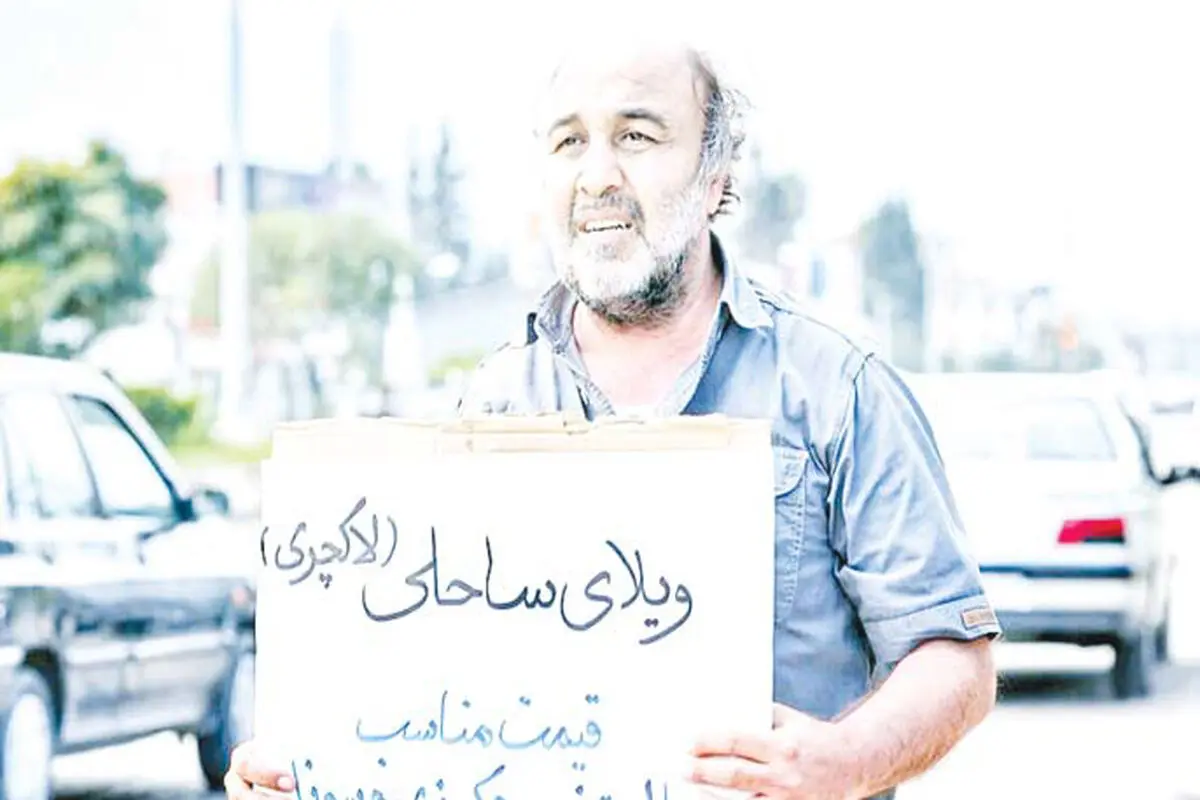 ویلای ساحلی (لاکچری)
قیمت مناسب